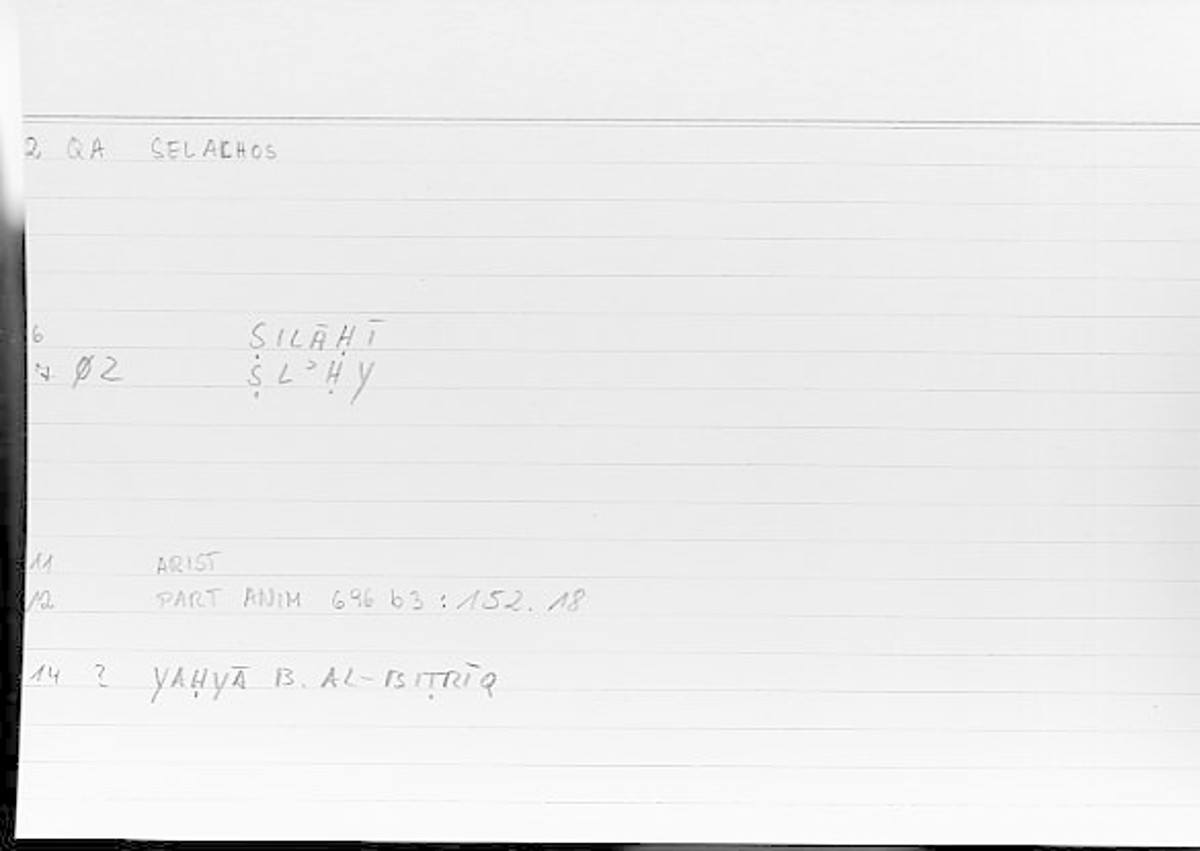 2 QA SELACHOS
6 ṢILĀḤĪ
7 Ø2 ṢLʾḤY
11 ARIST
12 PART ANIM 696 b3 : 152. 18
14 ? YAḤYĀ B. AL-BIṬRĪQ